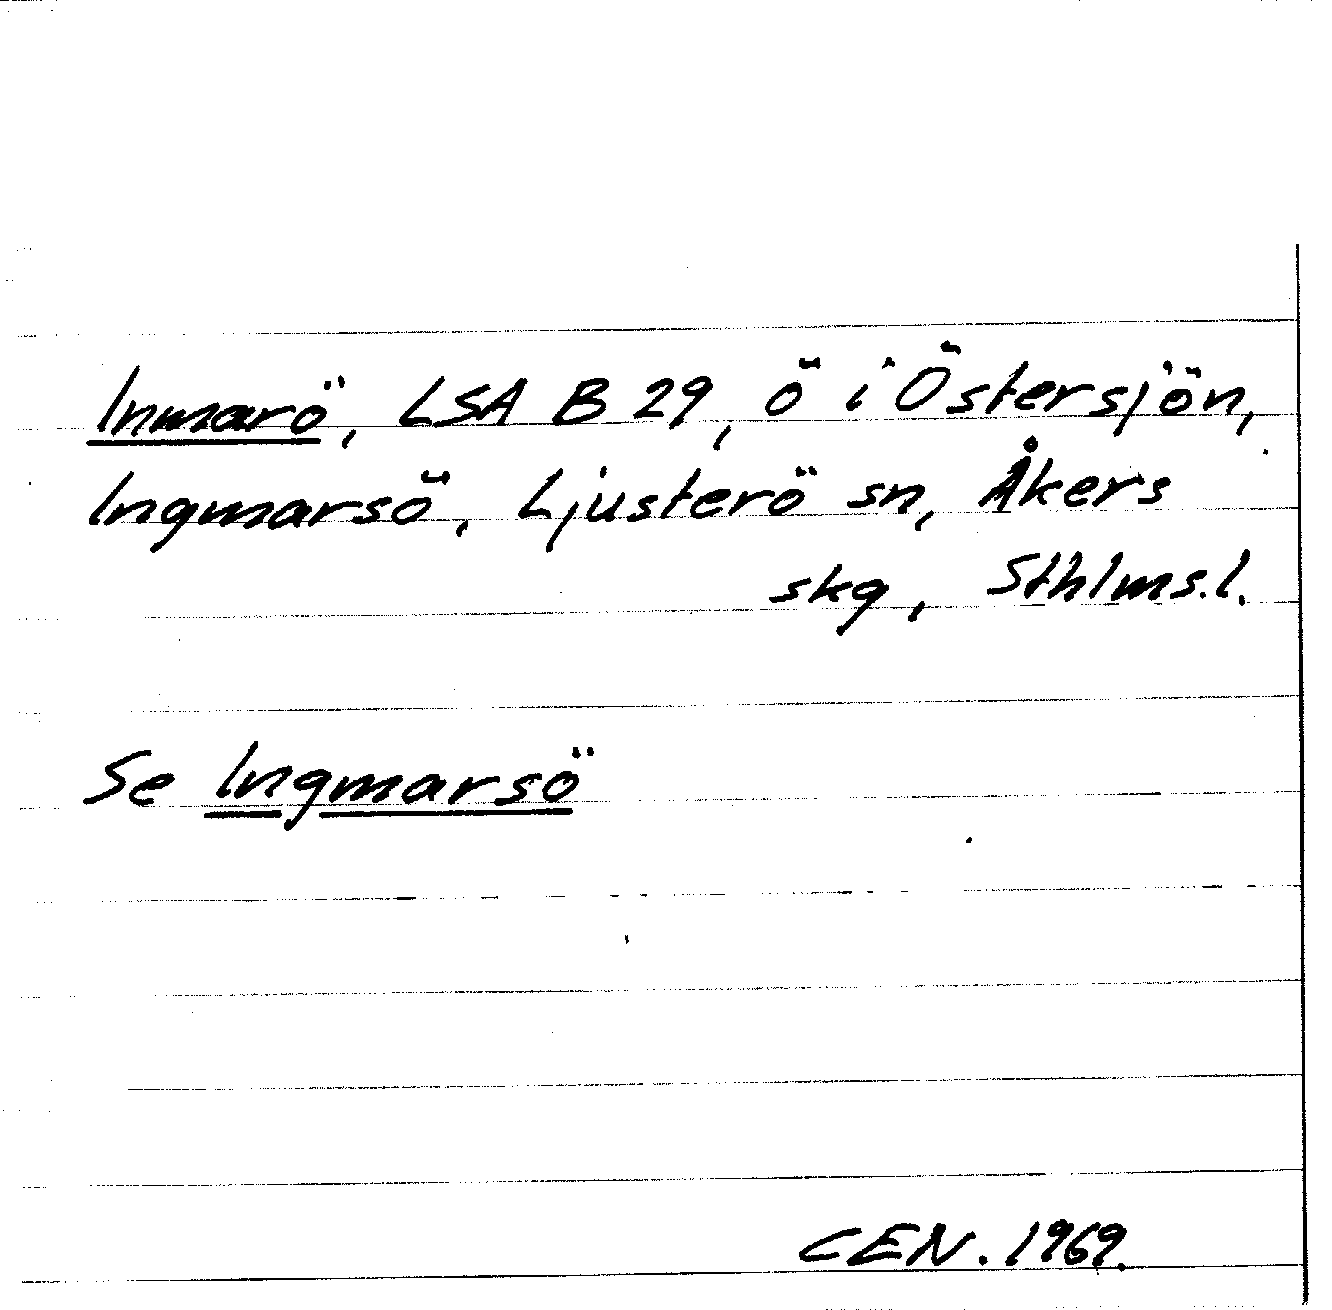 Inmarö, LSA B 29, ö i Östersjön,
Ingmarsö, Ljusterö sn, Åkers
skg, Sthlms.l.
Se Ingmarsö
CEN. 1969.